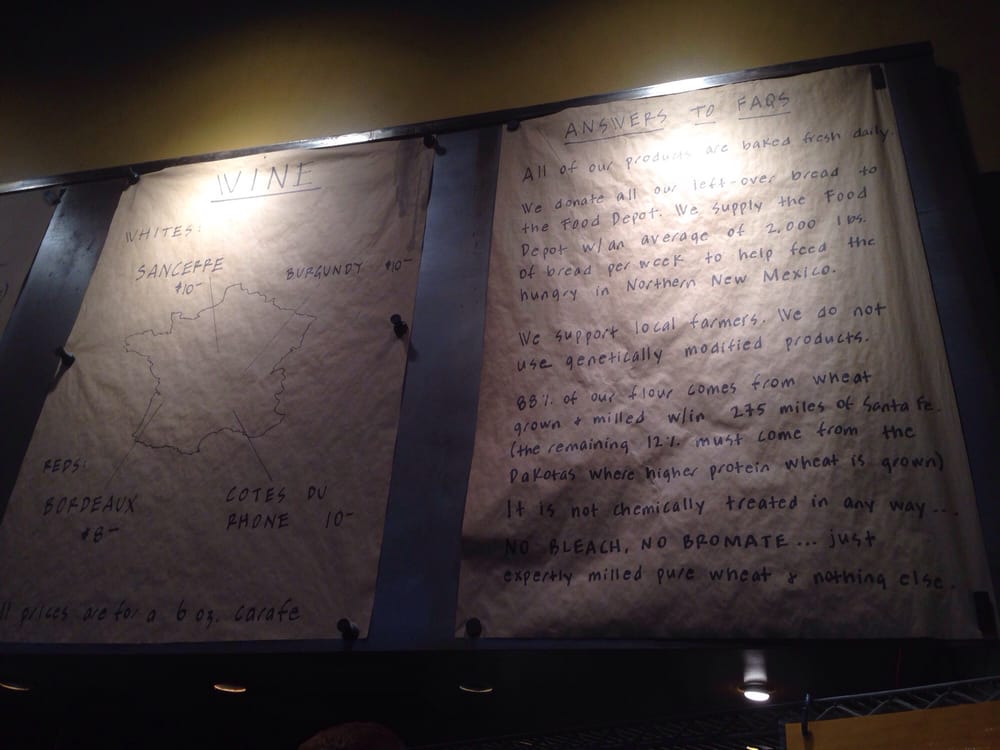 WINE
WHITES:
SANCERRE
$10-
BURGUNDY $10-
REDS:
BORDEAUX
$8-
COTES DU
RHONE 10-
prices are for a 6 oz. carafe
ANSWERS TO FAQS
All of our products are baked fresh daily.
We donate all our left-over bread to
the Food Depot. We supply the Food
Depot w/an average of 2,000 lbs.
of bread per week to help feed the
hungry in Northern New Mexico.
We support local farmers. We do not
use genetically modified products.
88% of our flour comes from wheat
grown & milled w/in 275 miles of Santa Fe.
(the remaining 12% must come from the
Dakotas where higher protein wheat is grown)
It is not chemically treated in any way...
NO BLEACH, NO BROMATE... just
expertly milled pure wheat & nothing else.